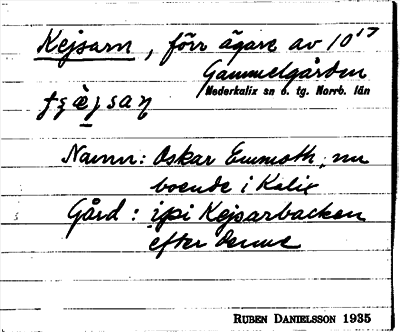 Kejsarn, förr ägare av 10¹⁷
Gammelgården
Nederkalix sn ö. tg. Norrb. län
Namn: Oskar Emmoth, nu
boende i Kalix
Gård: Kejsarbacken
efter denne
RUBEN DANIELSSON 1935